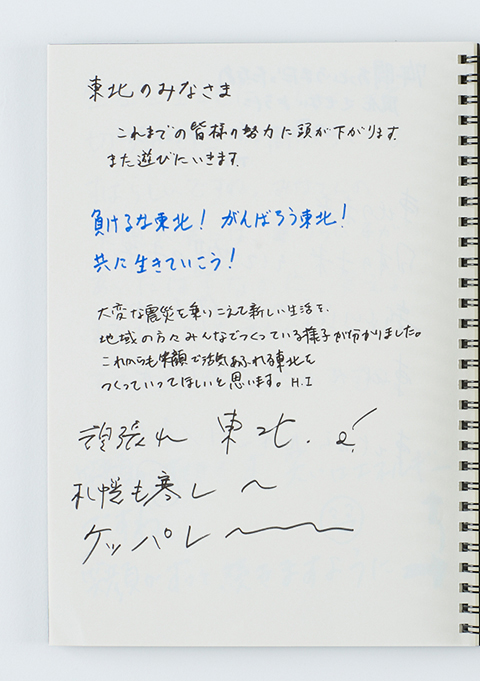 東北のみなさま
これまでの皆様の努力に頭が下がります
また遊びにいきます
負けるな東北! がんばろう東北!
共に生きていこう!
大変な震災を乗りこえて新しい生活を、
地域の方々みんなでつくっている様子が分かりました。
これからも笑顔で活気あふれる東北を
つくっていってほしいと思います。H.I
頑張れ 東北.
札幌も寒し〜
ケッパレ〜